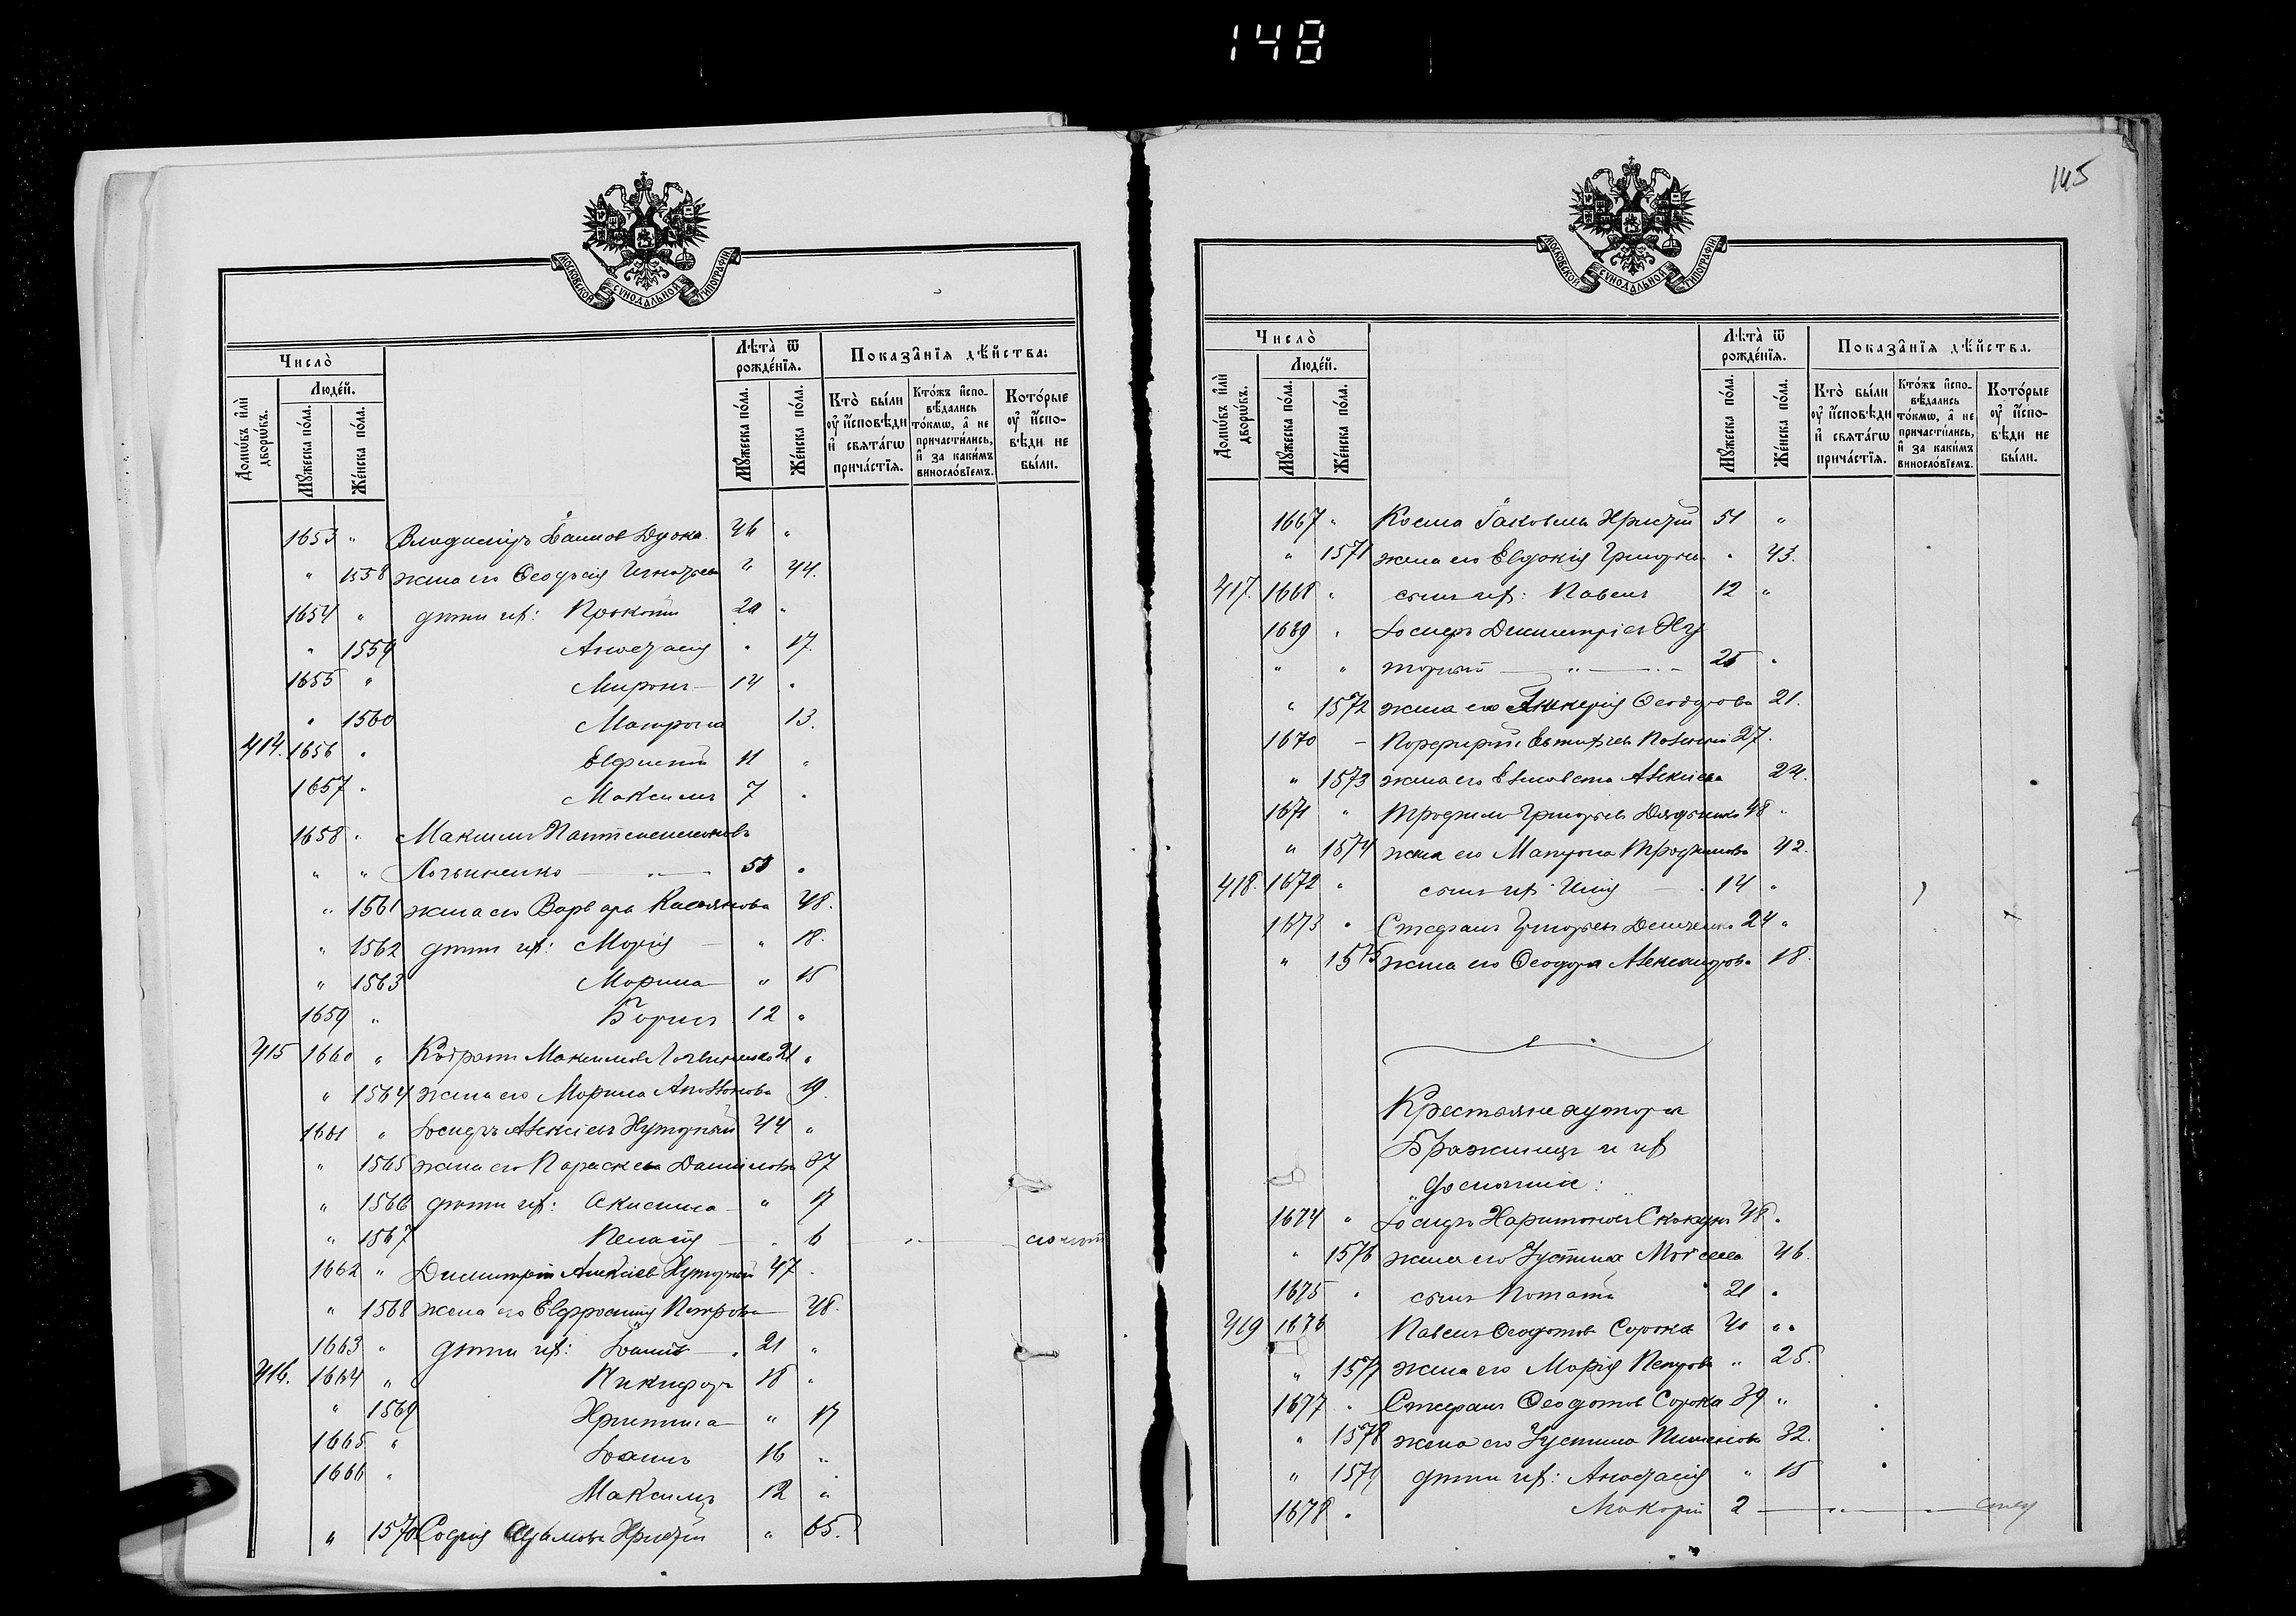 148
МОСКОВСКОЙ СѴНОДАЛЬНОЙ ТИПОГРАФІИ
Число̀
Домѡ́въ и҆лѝ дворѡ́въ.
Люде́й.
Мꙋ́жеска по́ла.
Же́нска по́ла.
Лѣ́та ѿ рожде́нїѧ.
Мꙋ́жеска по́ла.
Же́нска по́ла.
Показа̂нїѧ дѣ́йства:
Кто̀ бы́ли оу҆ и҆́сповѣди и҆ свѧта́гѡ прича́стїѧ.
Кто́жъ и҆сповѣ́дались то́кмѡ, а҆ не причасти́лись, и҆ за каки́мъ винослѻ́вїемъ.
Кото́рые оу҆ и҆́сповѣди не бы́ли.
1653 " Владиміръ Іоаннов Дудка 46 "
" 1558 жена его Ѳеодосія Игнатьева " 44.
1654 " дѣти ихъ: Прокопій 20 "
" 1559 Анастасія " 17.
1655 " Миронъ 14 "
" 1560 Матрона 13.
414. 1656 " Евфимій 11 "
1657 " Максимъ 7 "
1658 " Максимъ Пантелеимоновъ
" " Логвиненко 50 "
" 1561 жена его Варвара Касьянова 48.
" 1562 дѣти ихъ: Марія " 18.
" 1563 Марина " 15
1659 " Борисъ 12 "
415 1660 " Кодратъ Максимовъ Логвиненко 21 "
" 1564 жена его Марина Аполлонова 19.
1661 " Іосифъ Алексіевъ Хуторный 44 "
" 1565 жена его Параскева Даніилова 37
" 1566 дѣти ихъ: Акилина " 17
" 1567 Пелагія 6
1662 " Димитрій Алексіевъ Хуторный 47 "
" 1568 жена его Евфросинія Петрова 48.
1663 " дѣти ихъ: Іоаннъ 21 "
416. 1664 " Никифоръ 18 "
" 1569 Христина " 17
1665 " Іоаннъ 16 "
1666 " Максимъ 12 "
" 1570 Софія Адамова " 65.
145
МОСКОВСКОЙ СѴНОДАЛЬНОЙ ТИПОГРАФІИ
Число̀
Домѡ́въ и҆лѝ дворѡ́въ.
Люде́й.
Мꙋ́жеска по́ла.
Же́нска по́ла.
Лѣ́та ѿ рожде́нїѧ.
Мꙋ́жеска по́ла.
Же́нска по́ла.
Показа̂нїѧ дѣ́йства.
Кто̀ бы́ли оу҆ и҆́сповѣди и҆ свѧта́гѡ прича́стїѧ.
Кто́жъ и҆сповѣ́дались то́кмѡ, а҆ не причасти́лись, и҆ за каки́мъ винослѻ́вїемъ.
Кото́рые оу҆ и҆́сповѣди не бы́ли.
1667 " Косма Іаковлевъ 51 "
" 1571 жена его Евдокія Григорьева " 43.
417. 1668 " сынъ ихъ: Павелъ 12 "
1669 " Іосифъ Димитріевъ Ху
" " торный 25 "
" 1572 жена его Ѳеодорова 21.
1670 - Порфирій 27.
" 1573 жена его Елисавета Алексіева 24.
1671 " Трофимъ Григорьевъ 48 "
" 1574 жена его Матрона Трофимова 42.
418. 1672 " сынъ ихъ Илія 14 "
1673 " Стефанъ Григорьевъ Демченко 24 "
" 1575 жена его Ѳеодора Александрова 18.
Крестьяне хутора
Бражинецъ и ихъ
домашніе:
1674 " Іосифъ Харитоновъ Скакунъ 48 "
" 1576 жена его Іустина Моѵсеева 46.
1675 " сынъ Потапій 21 "
419 1676 Павелъ Ѳеодотовъ Сорока "
" 1577 жена его Марія Петрова " 25.
1677 " Стефанъ Ѳеодотовъ Сорока 39 "
" 1578 жена его Іустина Пименова 32.
" 1579 дѣти ихъ: Анастасія " 15
1678 " Макарій 2